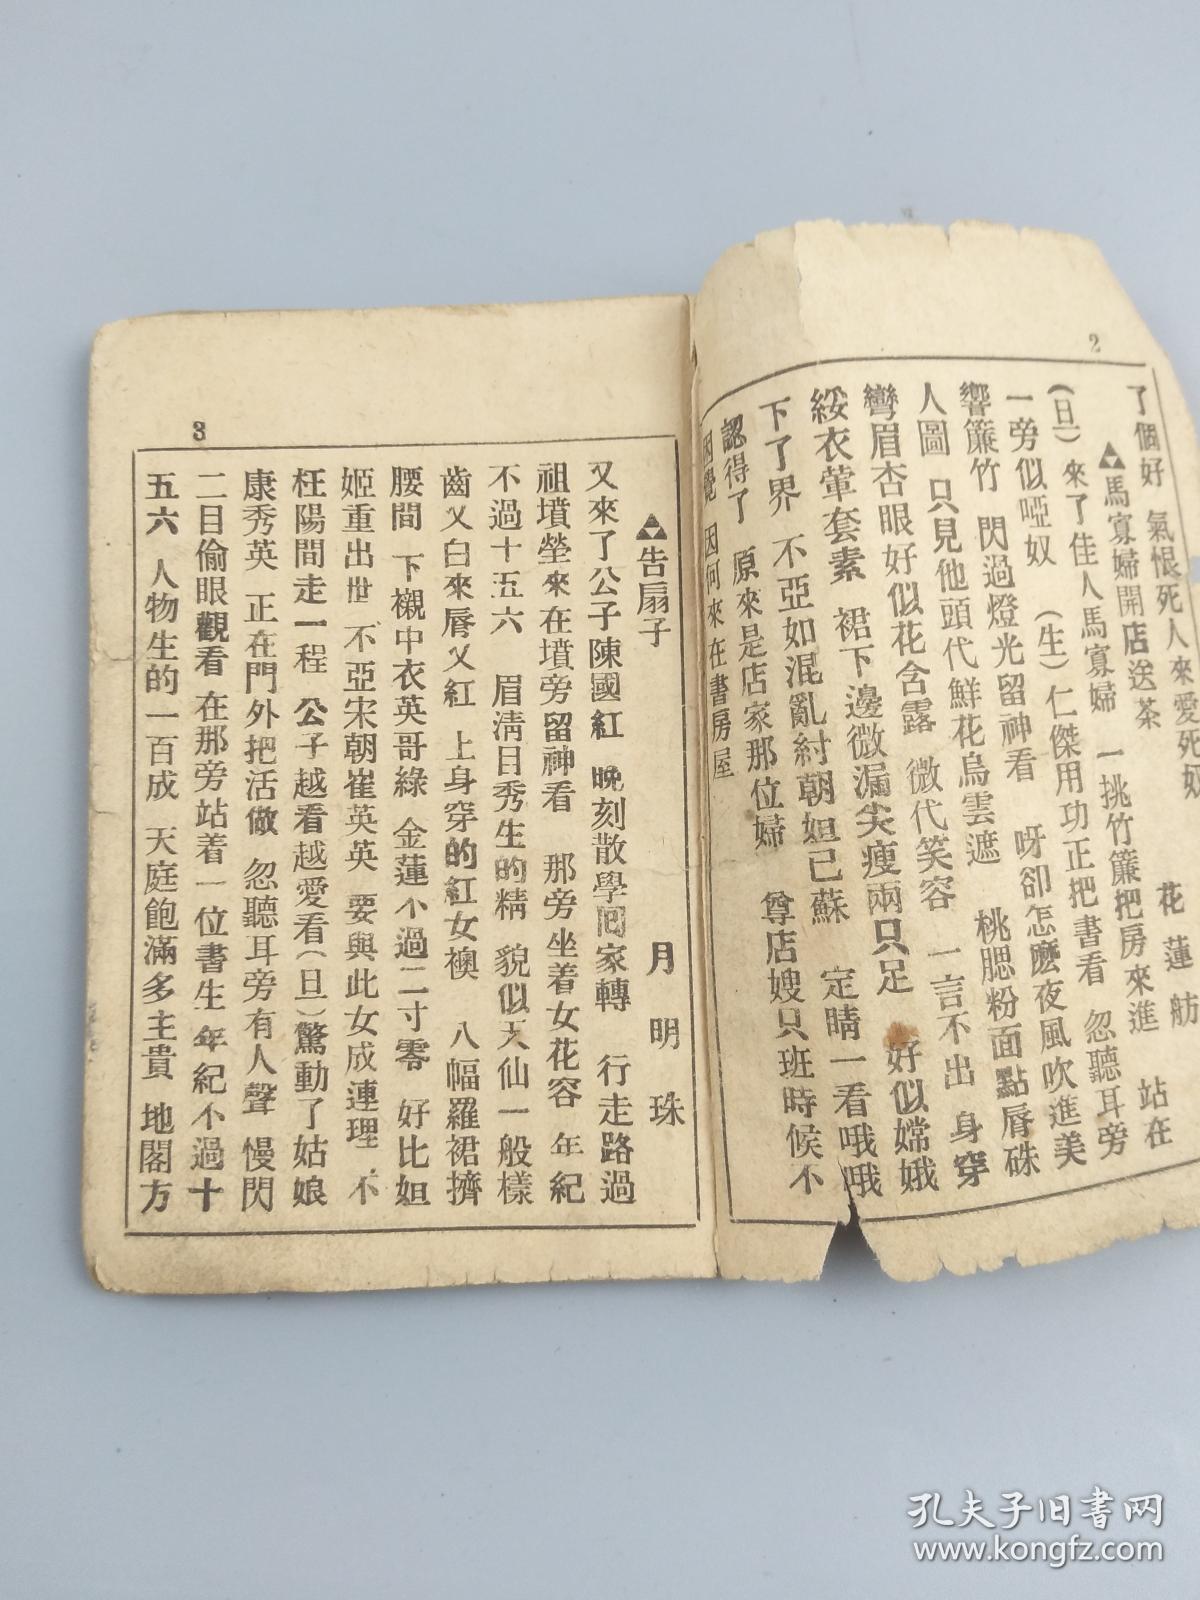 2
了個好 氣恨死人來愛死奴
▲馬寡婦開店送茶 花蓮舫
(旦)來了佳人馬寡婦 一挑竹簾把房來進 站在
一旁似啞奴 (生)仁傑用功正把書看 忽聽耳旁
響簾竹 閃過燈光留神看 呀卻怎麽夜風吹進美
人圖 只見他頭代鮮花烏雲遮 桃腮粉面點唇硃
彎眉杏眼好似花含露 微代笑容 一言不出 身穿
綏衣葷套素 裙下邊微漏尖瘦兩只足 好似嫦娥
下了界 不亞如混亂紂朝妲己蘇 定睛一看哦哦
認得了 原來是店家那位婦 尊店嫂只班時候不
困覺 因何來在書房屋
3
▲告扇子 月明珠
又來了公子陳國紅 晚刻散學囘家轉 行走路過
祖墳塋來在墳旁留神看 那旁坐着女花容 年紀
不過十五六 眉淸日秀生的精 貌似天仙一般樣
齒又白來唇又紅 上身穿的紅女襖 八幅羅裙擠
腰間 下襯中衣英哥綠 金蓮不過二寸零 好比妲
姬重出世 不亞宋朝崔英英 要與此女成連理 不
枉陽間走一程 公子越看越愛看(旦)驚動了姑娘
康秀英 正在門外把活做 忽聽耳旁有人聲 慢閃
二目偷眼觀看 在那旁站着一位書生 年紀不過十
五六 人物生的一百成 天庭飽滿多主貴 地閣方
孔夫子旧书网
www.kongfz.com